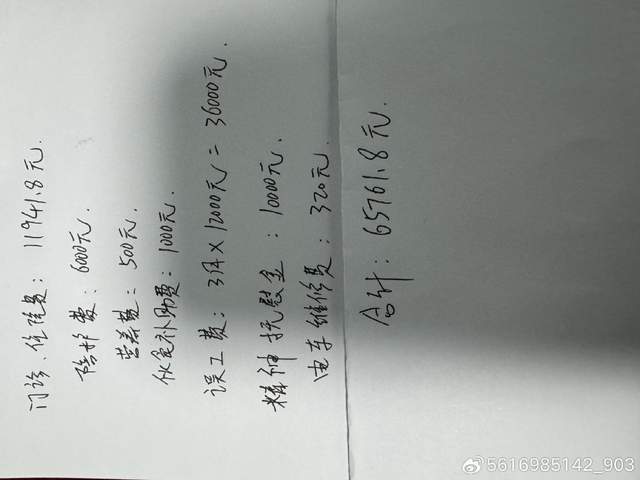 门诊、住院费：11941.8元.
陪护费：6000元.
营养费：500元.
伙食补助费：1000元.
误工费：3月×12000元=36000元.
精神抚慰金：10000元.
电车维修费：320元.
合计：65761.8元.
@5616985142_903